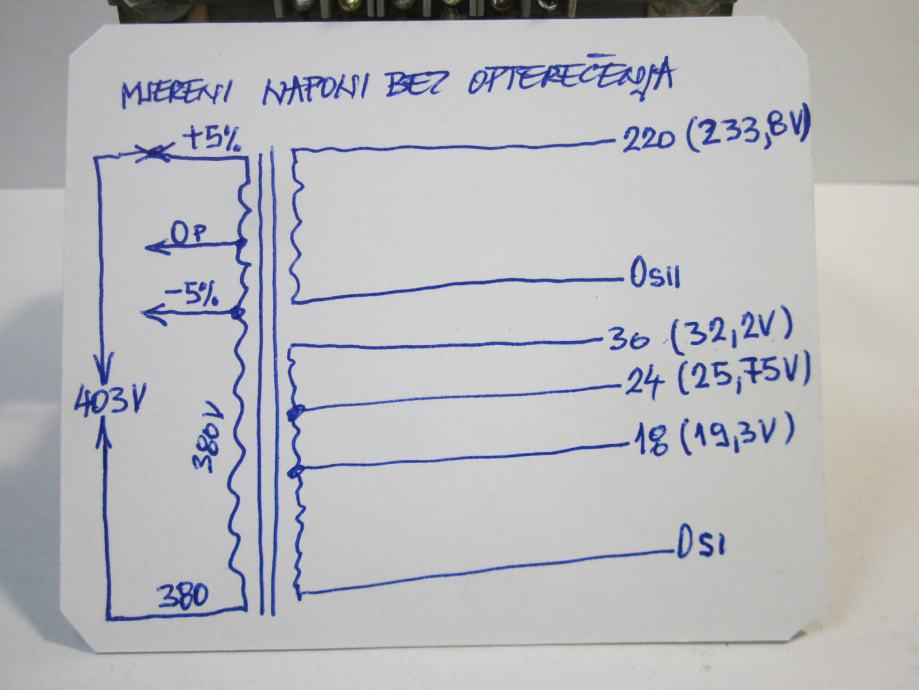 MJERENI NAPONI BEZ OPTEREĆENJA
+5%
220 (233,8V)
0P
-5%
0SII
30 (32,2V)
24 (25,75V)
403V
18 (19,3V)
380V
0SI
380